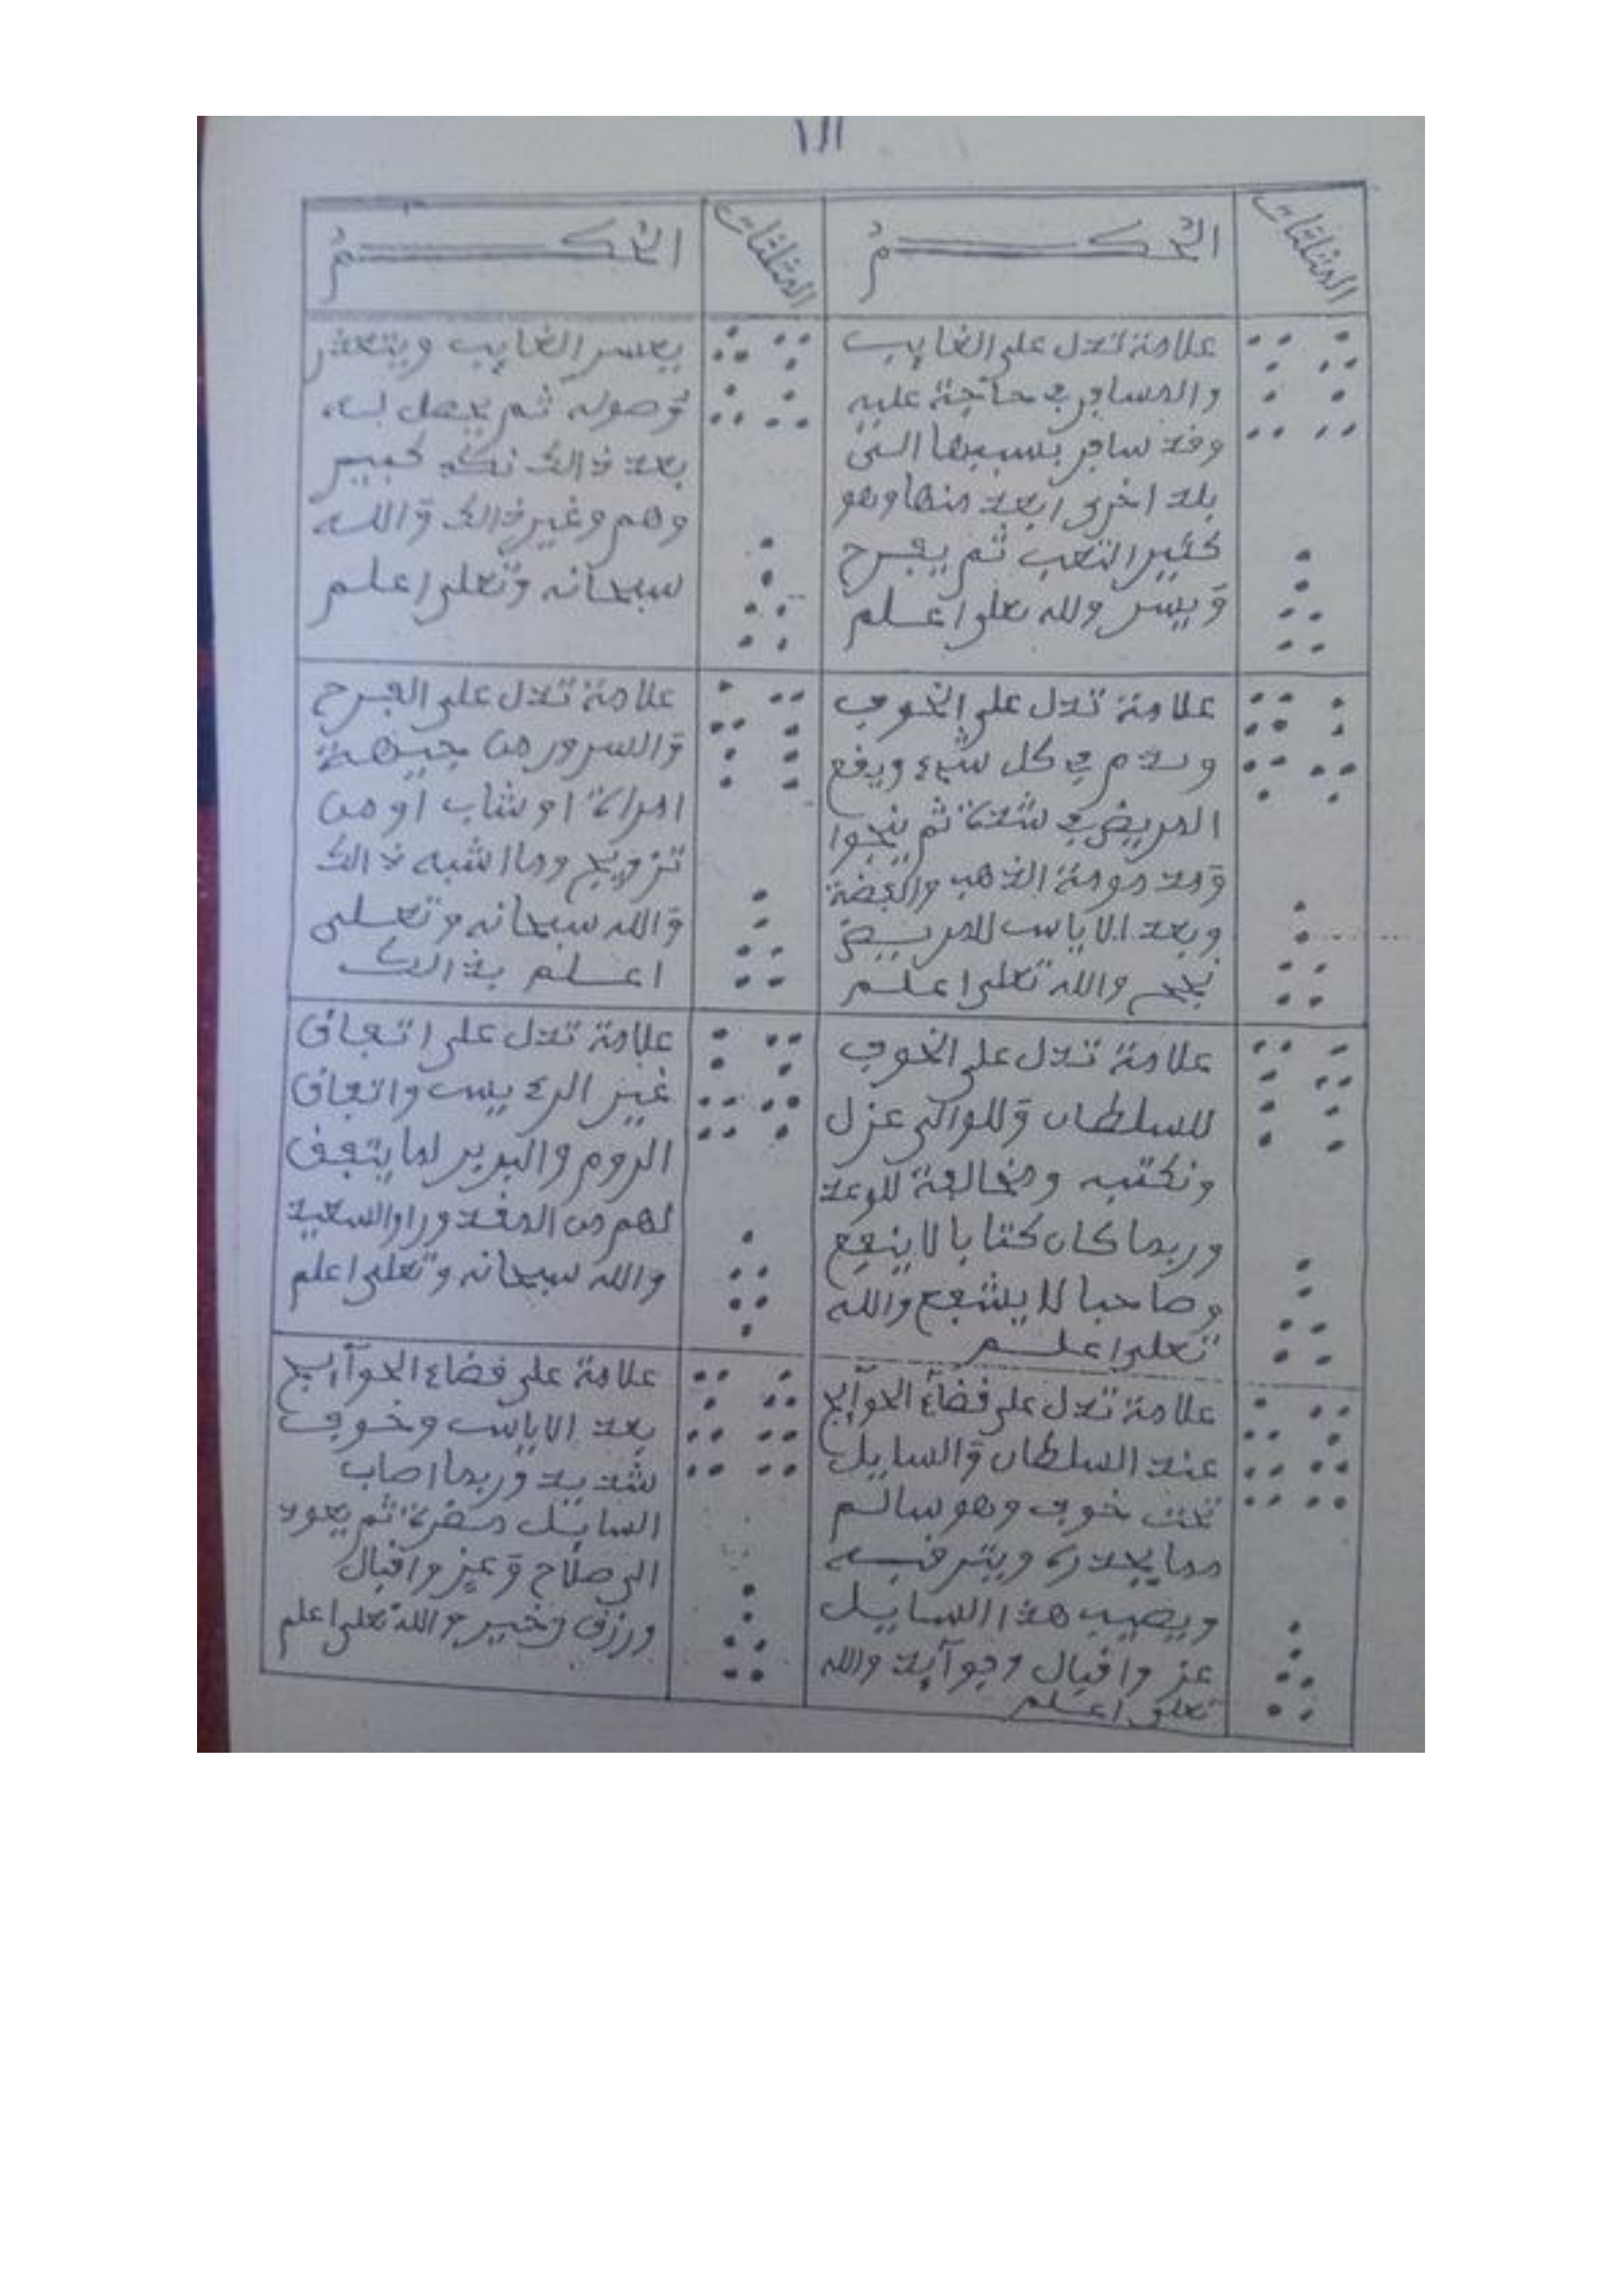 ١١١
المثلثات
الحكم
المثلثات
الحكم
علامة تدل على الغايب
والمسافر في حاجة عليه
وقد سافر بسببها الى
بلد اخرى ابعد منها وهو
كثير التعب ثم يفرح
وييسر والله تعلى اعلم
يعسر الغايب ويتعثر
وصوله ثم يحصل له
بعد ذالك نكد كبير
وهم وغير ذالك والله
سبحانه وتعلى اعلم
علامة تدل على الخوف
وندم في كل شيء ويقع
المريض في شدة ثم ينجوا
الذهب والفضة
وبعد الاياس للمريض
والله تعلى اعلم
علامة تدل على الفرح
والسرور من جيهة
امراة او شاب او من
تزويج وما اشبه ذالك
والله سبحانه وتعلى
اعلم بذالك
علامة تدل على الخوف
للسلطان وللوالي عزل
ونكتبه ومخالفة للوعد
وربما كان كتابا لا ينفع
وصاحبا لا يشفع والله
تعلى اعلم
علامة تدل على اتفاق
غير الرءييس واتفاق
الروم والبربر لما يتفق
لهم من السعيد
والله سبحانه وتعلى اعلم
علامة تدل على قضاء الحوآيج
عند السلطان والسايل
تحت خوف وهو سالم
مما يحذره ويترقبه
ويصيب هذا السايل
عز واقبال والله
تعلى اعلم
علامة على قضاء الحوآيج
بعد الاياس وخوف
شديد وربما اصاب
السايل ثم يعود
الى صلاح وعز واقبال
ورزق وخير والله تعلى اعلم